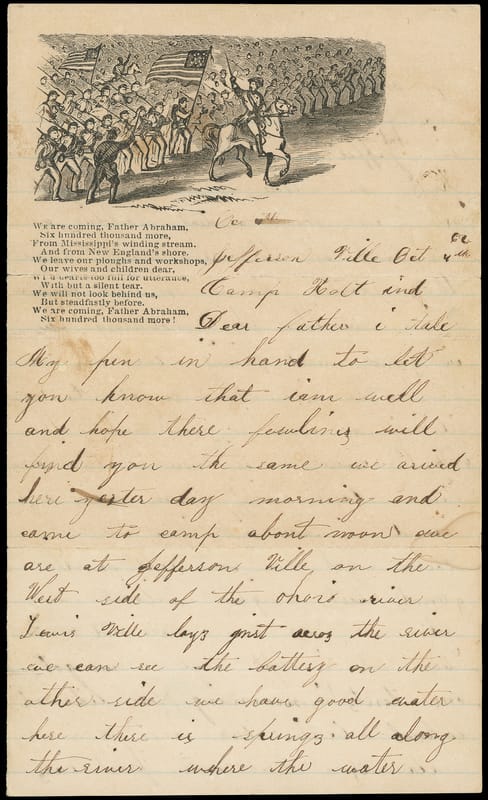 We are coming, Father Abraham,
Six hundred thousand more,
From Mississippi's winding stream.
And from New England's shore.
We leave our ploughs and workshops,
Our wives and children dear,
full for utterance,
With but a silent tear.
We will not look behind us,
But steadfastly before.
We are coming, Father Abraham,
Six hundred thousand more!
Co
Jefferson Ville Oct 4th 62
Camp Holt ind
Dear father i take
My pen in hand to let
you know that iam well
and hope these fewlines will
find you the same we arived
here yester day morning and
came to camp about noon we
are at Jefferson Ville on the
West side of the ohoio river
Lewis Ville lays just acros the river
we can see the battery on the
other side we have good water
here there is springs all along
the river where the water